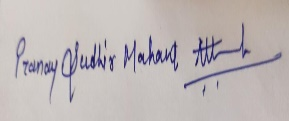 Pranay Sudhir Mahant